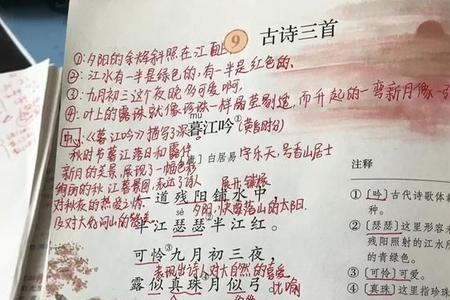 9 古诗三首
①:夕阳的余晖斜照在江面上
②:江水有一半是绿色的,有一半是红色的.
③:九月初三这个夜晚多可爱啊,
④:叶上的露珠就像珍珠一样晶莹剔透,而升起的一弯新月像一
mù
暮江吟① (黄昏时分)
中心:《暮江吟》描写了深
秋时节暮江落日和露伴
新月的美景,展现了一幅色彩
绚丽的秋江暮景图,表达了诗人
对秋夜的热爱之情,
及对大好河山的
白居易 字乐天,号香山居士
展开 铺展
一道残阳铺水中
sè 夕阳,快要落山的太阳.
半江瑟瑟半江红。
可怜③九月初三夜,
表现出诗人对大自然的喜爱
露似真珠月似弓 比喻
注释
①〔吟〕古代诗歌体
种。
②〔瑟瑟〕这里形容
残阳照射的江水所
的青绿色。
③〔可怜〕可爱。
④〔真珠〕这里指珍珠